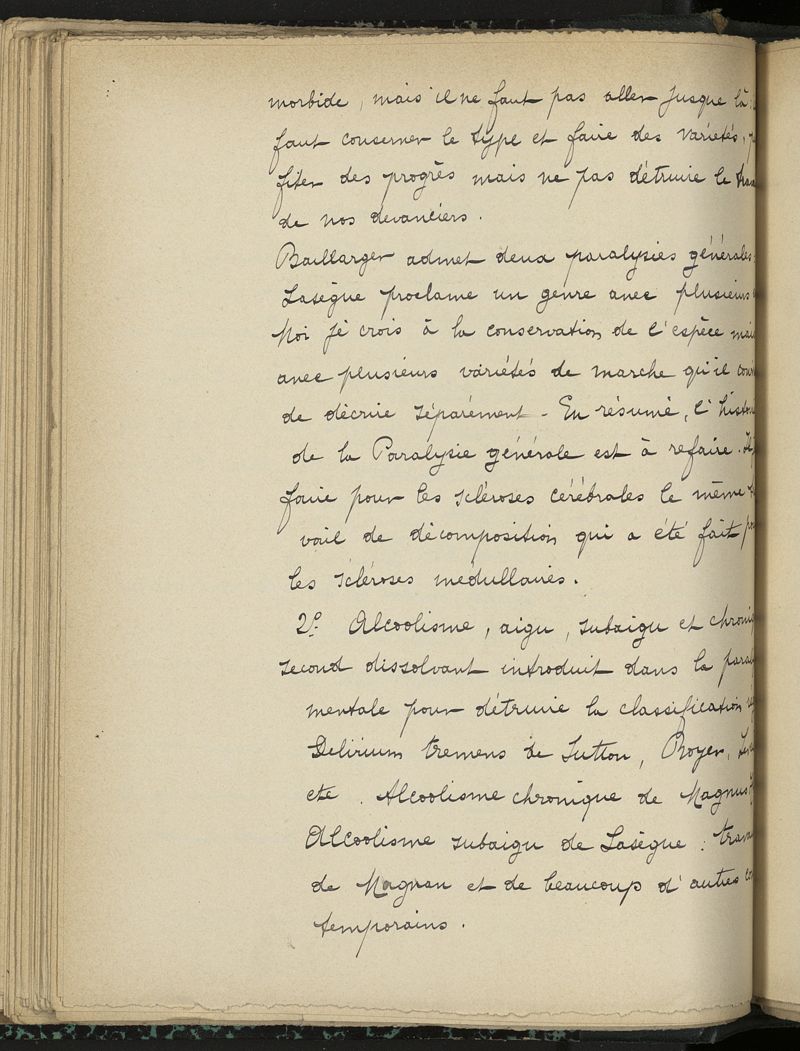 morbide, mais il ne faut pas aller jusque là
faut conserver le type et faire des variétés,
fiter des progrès mais ne pas détruire le
de nos devanciers.
Baillarger admet deux paralysies générales
Lasègue proclame un genre avec plusieurs
Moi je crois à la conservation de l'espèce mais
avec plusieurs variétés de marche qu'il
de décrire séparément - En résumé, l'
de la Paralysie générale est à refaire.
faire pour les scléroses cérébrales le même
vail de décomposition qui a été fait
les scléroses médullaires.
2º Alcoolisme, aigu, subaigu et
second dissolvant introduit dans la
mentale pour détruire la classification
Delirium tremens de Sutton, Royer,
etc. Alcoolisme chronique de
Alcoolisme subaigu de Lasègue :
de Magnan et de beaucoup d'autres
temporains.